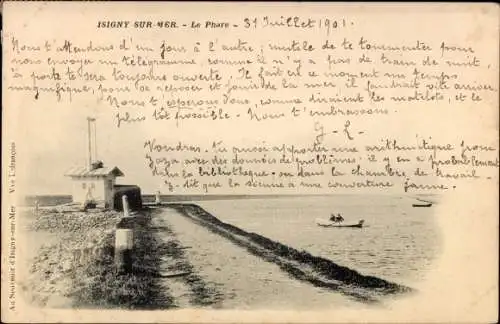 ISIGNY-SUR-MER. - Le Phare - 31 Juillet 1901.
Nous t'attendons d'un jour à l'autre; inutile de te tourmenter pour
nous envoyer un télégramme, comme il n'y a pas de train de nuit, la
porte te sera toujours ouverte; Il fait en ce moment un temps
magnifique, pour se reposer et jouir de la mer, il faudrait vite arriver.
Nous t'espérons donc, comme diraient les matelots, et le
plus tôt possible. Nous t'embrassons.
G - L -
Voudrais-tu aussi apporter une arithmétique pour
avec des données de problèmes. il y en a probablement
dans la bibliothèque ou dans la chambre de travail.
dit que la sienne a une couverture jaune.
Au Souvenir d'Isigny-sur-Mer